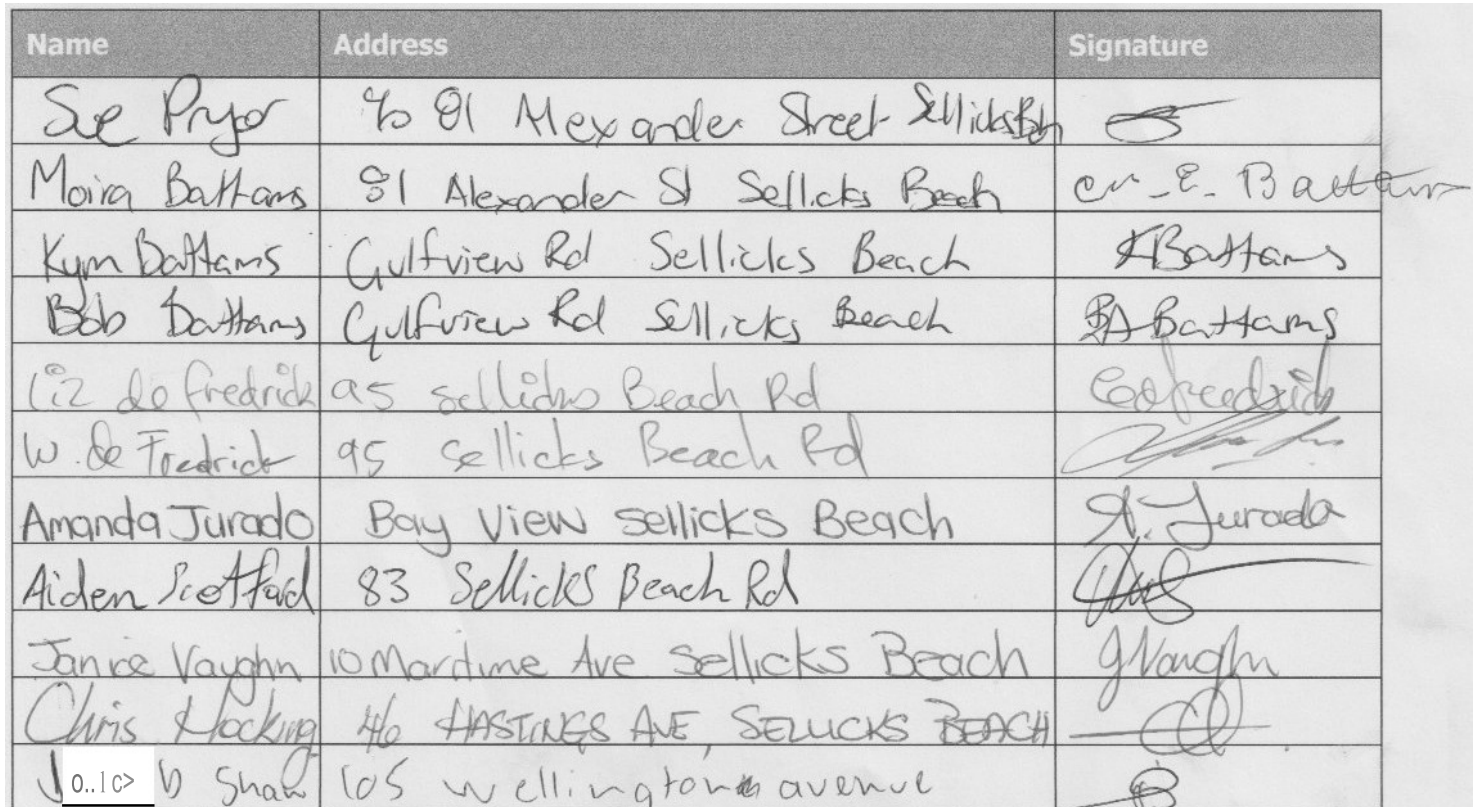 Name Address Signature
Sue Pryor c/o 81 Alexander Street Sellicks Bch
Moira Battams 81 Alexander St Sellicks Beach M. E. Battams
Kym Battams Gulfview Rd Sellicks Beach KBattams
Bob Battams Gulfview Rd Sellicks Beach BA Battams
Liz de fredrick 95 sellicks Beach Rd
W. de Fredrick 95 Sellicks Beach Rd
Amanda Jurado Bay View Sellicks Beach A. Jurado
Aiden Scotford 83 Sellicks Beach Rd
Janice Vaughn 10 Maritime Ave Sellicks Beach JVaughn
Chris Hocking 46 HASTINGS AVE, SELLICKS BEACH
o..lc> b Shaw 105 wellington avenue